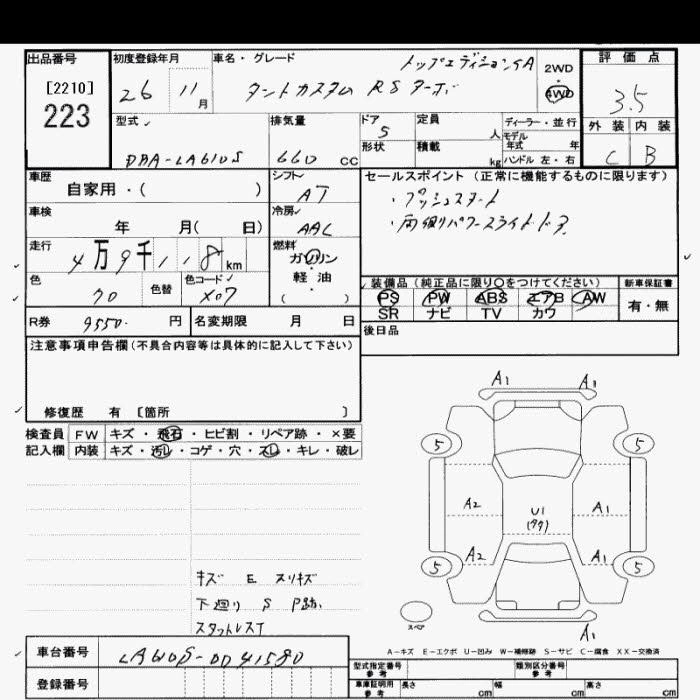 出品番号
[2210]
223
初度登録年月
26 11月
車名・グレード
トップエディションSA
タントカスタム RS ターボ
2WD
4WD
評価点
3.5
外装 内装
C B
型式
DBA-LA610S
排気量
660 cc
ドア
5
形状
定員
人
積載
kg
ディーラー・並行
モデル年式 年
ハンドル 左・右
車歴
自家用・( )
シフト
AT
車検
年 月( 日)
冷房
AAC
走行
4万9千118km
燃料
ガソリン
・
軽油
( )
色
クロ
色替
色コード
X07
R券 9550. 円
名変期限 月 日
セールスポイント (正常に機能するものに限ります)
・プッシュスタート
・両側パワースライドドア
装備品(純正品に限り○をつけてください)
PS PW ABS エアB AW
SR ナビ TV カワ
新車保証書
有・無
後日品
注意事項申告欄(不具合内容等は具体的に記入して下さい)
修復歴 有 〔箇所 〕
検査員 FW キズ・飛石・ヒビ割・リペア跡・×要
記入欄 内装 キズ・汚れ・コゲ・穴・スレ・キレ・破レ
A1 A1
5 5
A2 U1 A1
A2 A1
5 5
スペア
A1
キズ E スリキズ
下廻り S P跡
スタットレスT
A−キズ E−エクボ U−凹み W−補修跡 S−サビ C−腐食 XX−交換済
車台番号
LA610S-0041580
登録番号
型式指定番号
参考
類別区分番号
参考
車庫証明用
参考
長さ cm 幅 cm 高さ cm